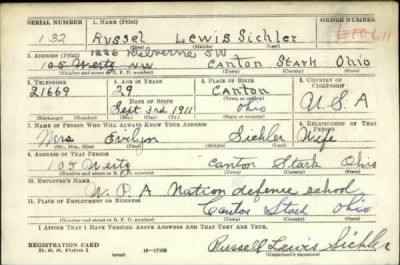 SERIAL NUMBER 1. NAME (Print) ORDER NUMBER
132 Russel Lewis Sichler
(First) (Middle) (Last)
2. ADDRESS (Print) 1226 S.W.
105 Wertz N.W Canton Stark Ohio
(Number and street or R. F. D. number) (Town) (County) (State)
3. TELEPHONE 4. AGE IN YEARS 5. PLACE OF BIRTH 6. COUNTRY OF CITIZENSHIP
21669 29 Canton
DATE OF BIRTH (Town or county)
Sept 3rd 1911 Ohio U.S.A
(Mo.) (Day) (Yr.) (State or country)
7. NAME OF PERSON WHO WILL ALWAYS KNOW YOUR ADDRESS 8. RELATIONSHIP OF THAT PERSON
Mrs Evelyn Sichler Wife
(Mr., Mrs., Miss) (First) (Middle) (Last)
9. ADDRESS OF THAT PERSON
105 Wertz Canton Stark Ohio
(Number and street or R. F. D. number) (Town) (County) (State)
10. EMPLOYER'S NAME
W. P. A Nation defense school
11. PLACE OF EMPLOYMENT OR BUSINESS
Canton Stark Ohio
(Number and street or R. F. D. number) (Town) (County) (State)
I AFFIRM THAT I HAVE VERIFIED ABOVE ANSWERS AND THAT THEY ARE TRUE.
REGISTRATION CARD
D. S. S. Form 1 16—17105 Russell Lewis Sichler
(Registrant's signature)